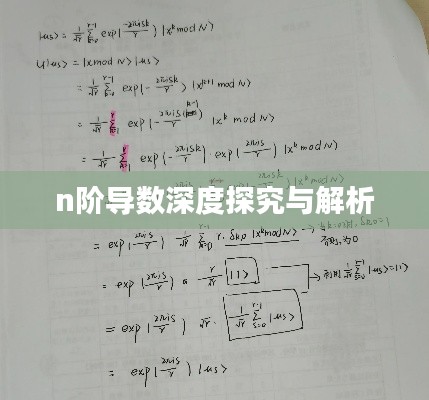 |us> = 1/√r Σ_{k=0}^{r-1} exp(-2πisk/r) |x^k mod N>
U|us> = |x mod N> |us>
= 1/√r Σ_{k=0}^{r-1} exp(-2πisk/r) |x^{k+1} mod N>
= 1/√r Σ exp(-2πis(k-1)/r) |x^k mod N>
= 1/√r Σ exp(-2πisk/r) · exp(2πis/r) |x^k mod N>
n阶导数深度探究与解析
= exp(2πis/r) 1/√r Σ r · δk,0 |x^k mod N>
否则,为0
= exp(2πis/r) r/√r |1>
1/√r Σ_{s=0}^{r-1} |us> = |1>
= exp(2πis/r) √r · 1/√r Σ_{s=0}^{r-1} |us>
= exp(2πis/r) |us>